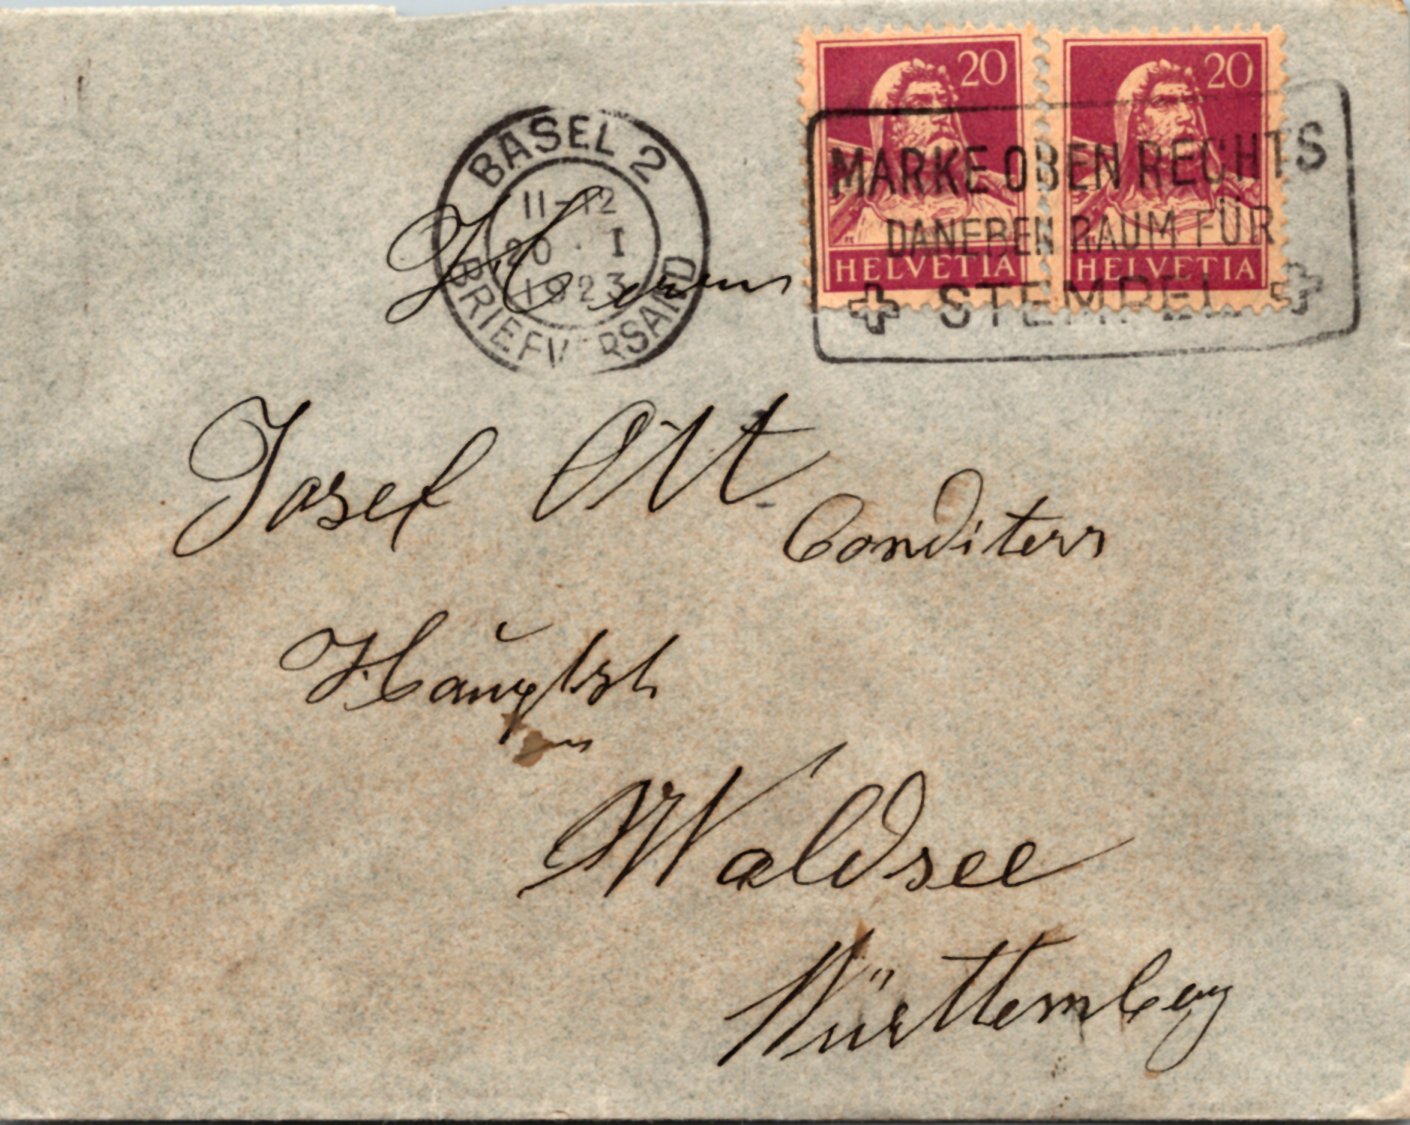 20 20
BASEL 2
11-12
20 I
1923
BRIEFVERSAND
MARKE OBEN RECHTS
DANEBEN RAUM FÜR
STEMPEL
HELVETIA HELVETIA
Josef Ott
Conditerr
Hauptst
Waldsee
Württemberg